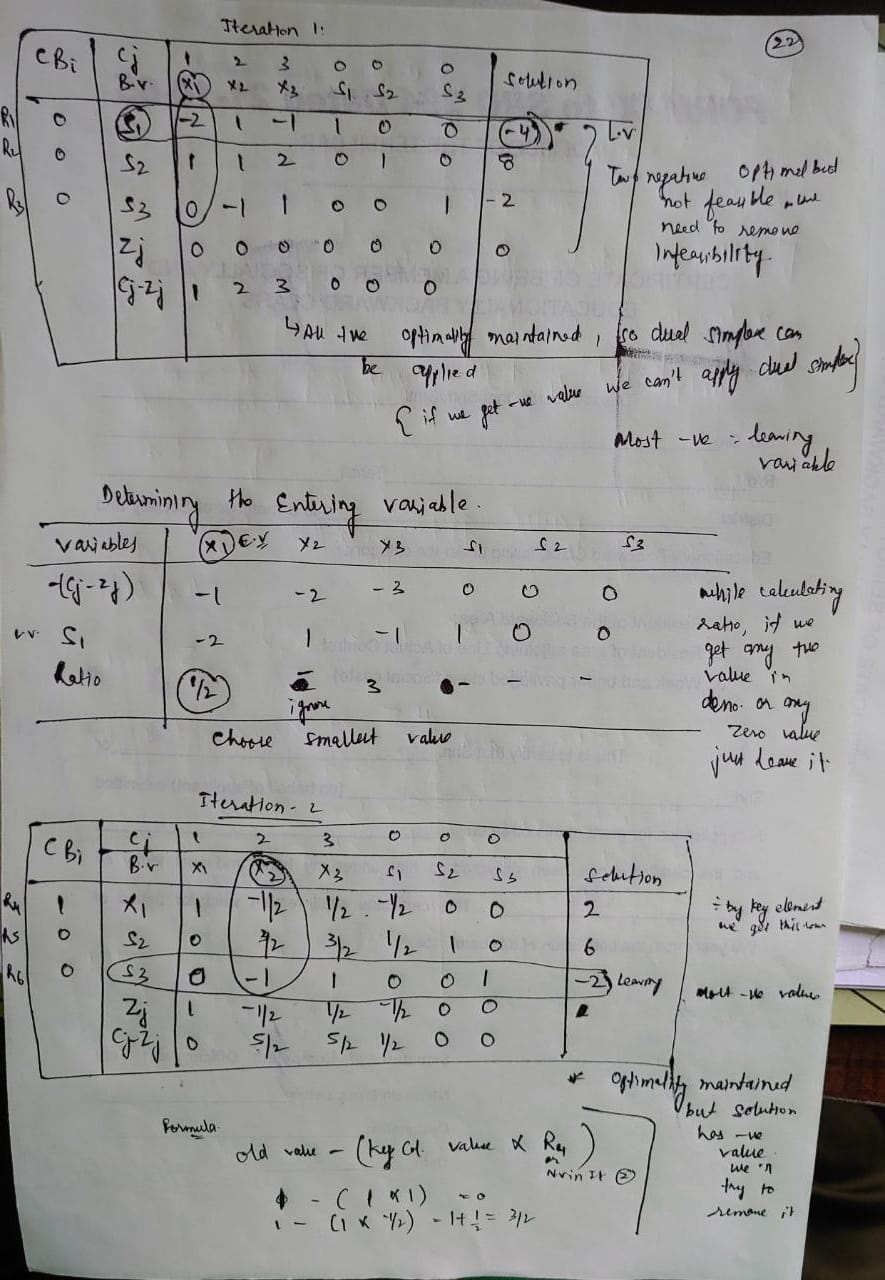 Iteration 1:
22
CBi Cj 1 2 3 0 0 0 Solution
B.v. x1 x2 x3 S1 S2 S3
R1 0 S1 -2 1 -1 1 0 0 -4 L.v
R2 0 S2 1 1 2 0 1 0 8
R3 0 S3 0 -1 1 0 0 1 -2
Zj 0 0 0 0 0 0 0
Cj-Zj 1 2 3 0 0 0
Two negative optimal but
not feasible, we
need to remove
Infeasibility.
↳ All +ve optimality maintained, so dual simplex can
be applied
{ if we get -ve value we can't apply dual simplex}
Most -ve = leaving
variable
Determining the Entering variable.
Variables x1 E.V x2 x3 S1 S2 S3
-(Cj-Zj) -1 -2 -3 0 0 0
S1 -2 1 -1 1 0 0
Ratio 1/2 - 3 - - -
ignore
Choose smallest value
while calculating
ratio, if we
get any +ve
value in
deno. or any
zero value
just leave it.
Iteration - 2
CBi Cj 1 2 3 0 0 0
B.v x1 x2 x3 S1 S2 S3 Solution
R4 1 x1 1 -1/2 1/2 -1/2 0 0 2
R5 0 S2 0 3/2 3/2 1/2 1 0 6
R6 0 S3 0 -1 1 0 0 1 -2 Leaving
Zj 1 -1/2 1/2 -1/2 0 0
Cj-Zj 0 5/2 5/2 1/2 0 0
÷ by key element
we get this row
most -ve value
* Optimality maintained
but solution
has -ve
value
we'll
try to
remove it
Formula.
old value - (key Col. value x R4)
or
Nv in It 2
- ( 1 x 1) = 0
1 - (1 x -1/2) - 1 + 1/2 = 3/2